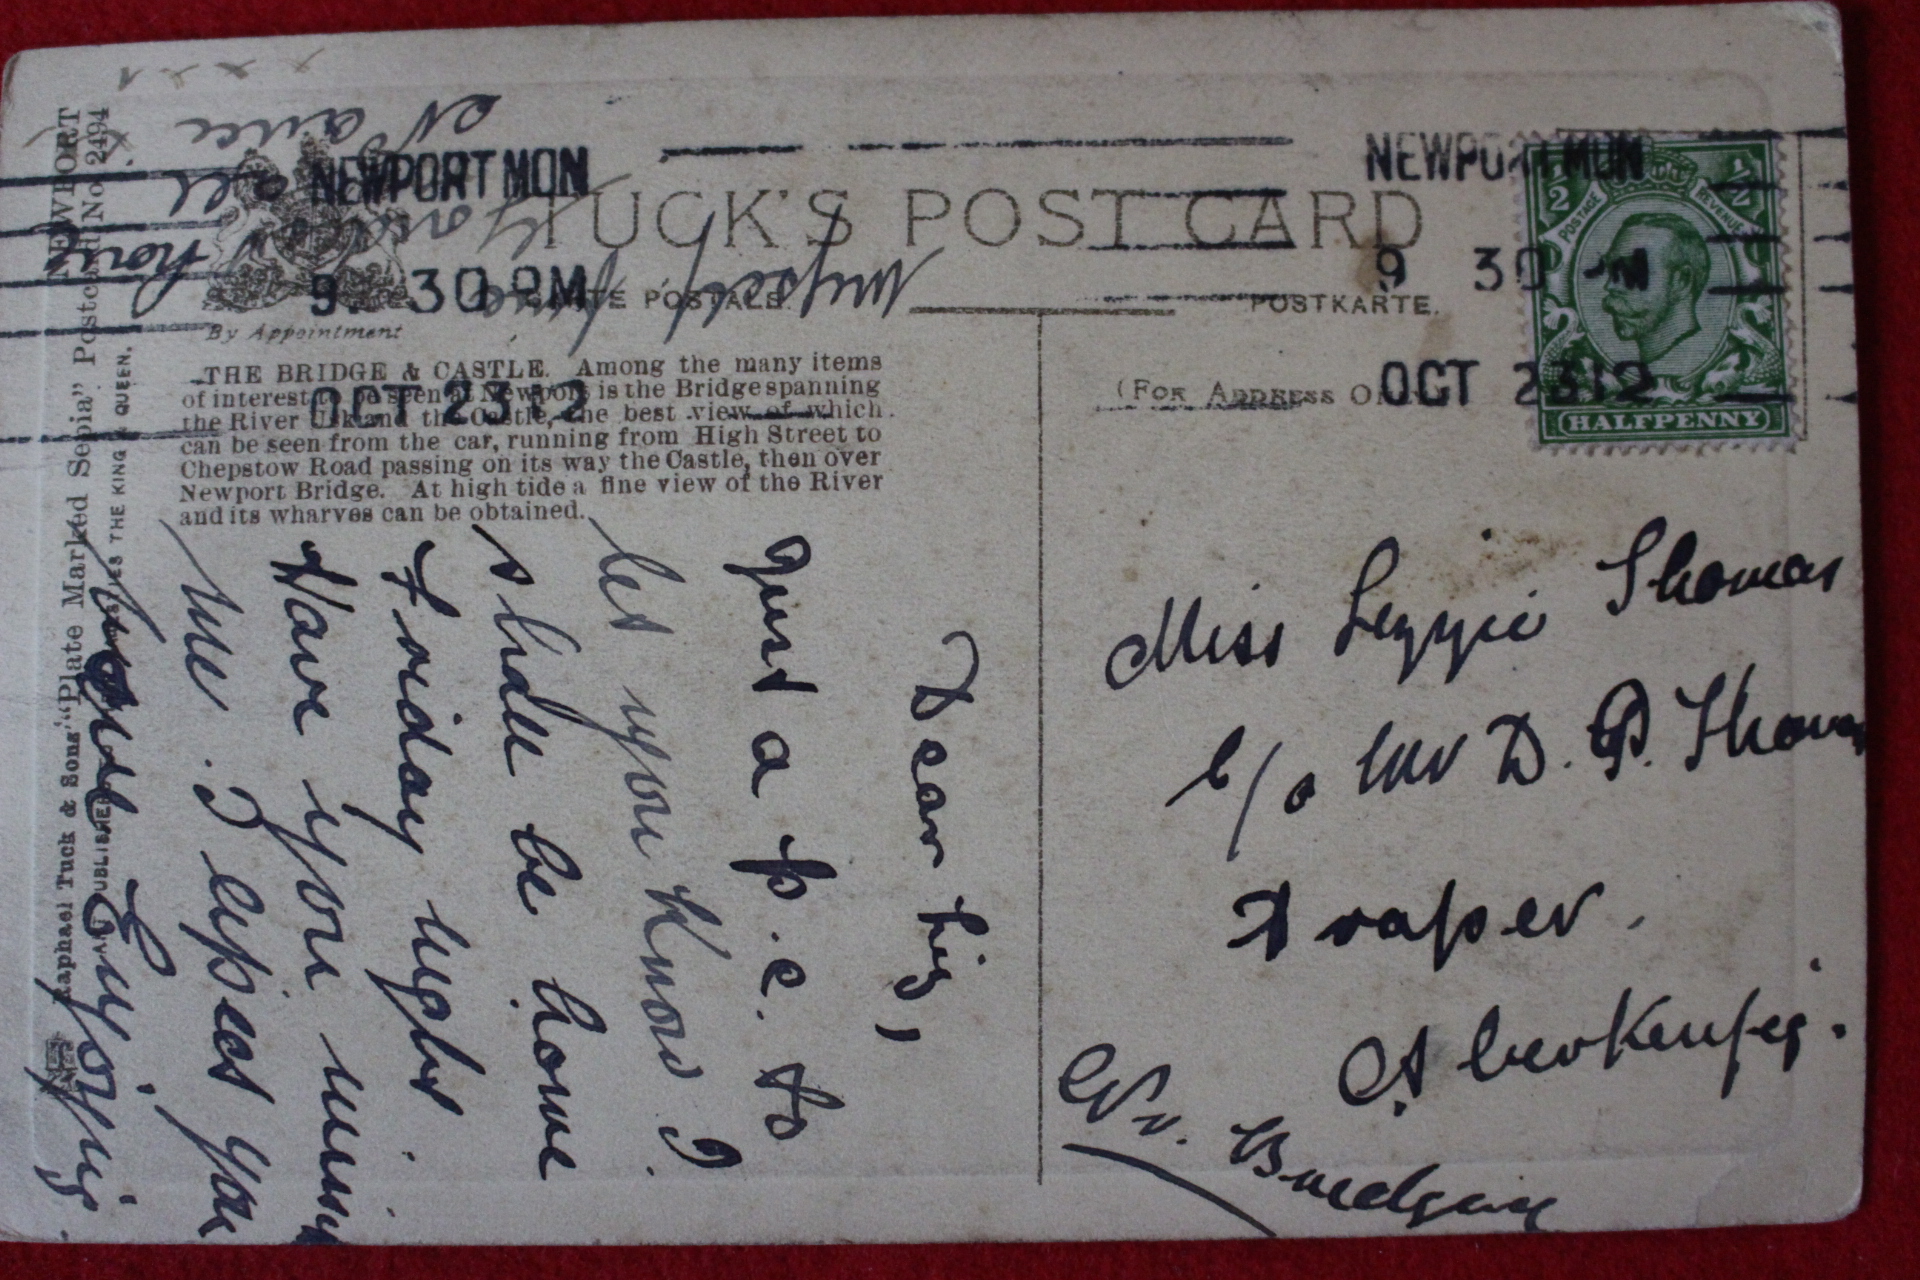 TUCK'S POST CARD
CARTE POSTALE
POSTKARTE.
(FOR ADDRESS ONLY)
By Appointment
NEWPORT MON
9. 30 PM
OCT 23 12
NEWPORT MON
9 30 PM
OCT 23 12
POSTAGE REVENUE
1/2 1/2
HALFPENNY
THE BRIDGE & CASTLE. Among the many items
of interest to be seen at Newport is the Bridge spanning
the River Usk and the Castle, the best view of which
can be seen from the car, running from High Street to
Chepstow Road passing on its way the Castle, then over
Newport Bridge. At high tide a fine view of the River
and its wharves can be obtained.
Raphael Tuck & Sons' "Plate Marked Sepia" Postcard No. 2494
NEWPORT
THE KING & QUEEN.
Dear Liz,
Just a p.c. to
let you know I
shall be home
Friday night.
Have you missed
me. I expect you
Enjoying
myself
hope
you
all
x x x x
Miss Lizzie Thomas
c/o Mr D. P. Thomas
Draper.
Aberkenfig.
Nr. Bridgend